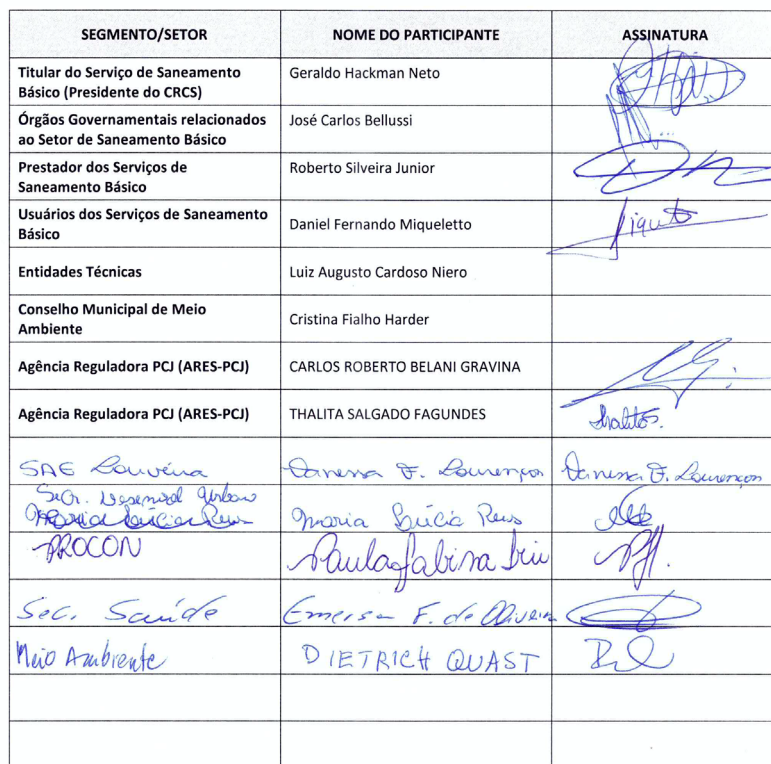 SEGMENTO/SETOR NOME DO PARTICIPANTE ASSINATURA
Titular do Serviço de Saneamento Básico (Presidente do CRCS) Geraldo Hackman Neto
Órgãos Governamentais relacionados ao Setor de Saneamento Básico José Carlos Bellussi
Prestador dos Serviços de Saneamento Básico Roberto Silveira Junior
Usuários dos Serviços de Saneamento Básico Daniel Fernando Miqueletto
Entidades Técnicas Luiz Augusto Cardoso Niero
Conselho Municipal de Meio Ambiente Cristina Fialho Harder
Agência Reguladora PCJ (ARES-PCJ) CARLOS ROBERTO BELANI GRAVINA
Agência Reguladora PCJ (ARES-PCJ) THALITA SALGADO FAGUNDES
SAE Louveira Vanessa F. Lourençon Vanessa F. Lourençon
Secr. Urbano
Maria Lúcia Reus
PROCON Paula Sabina
Sec. Saúde Emerson F. de Oliveira
Meio Ambiente DIETRICH QUAST